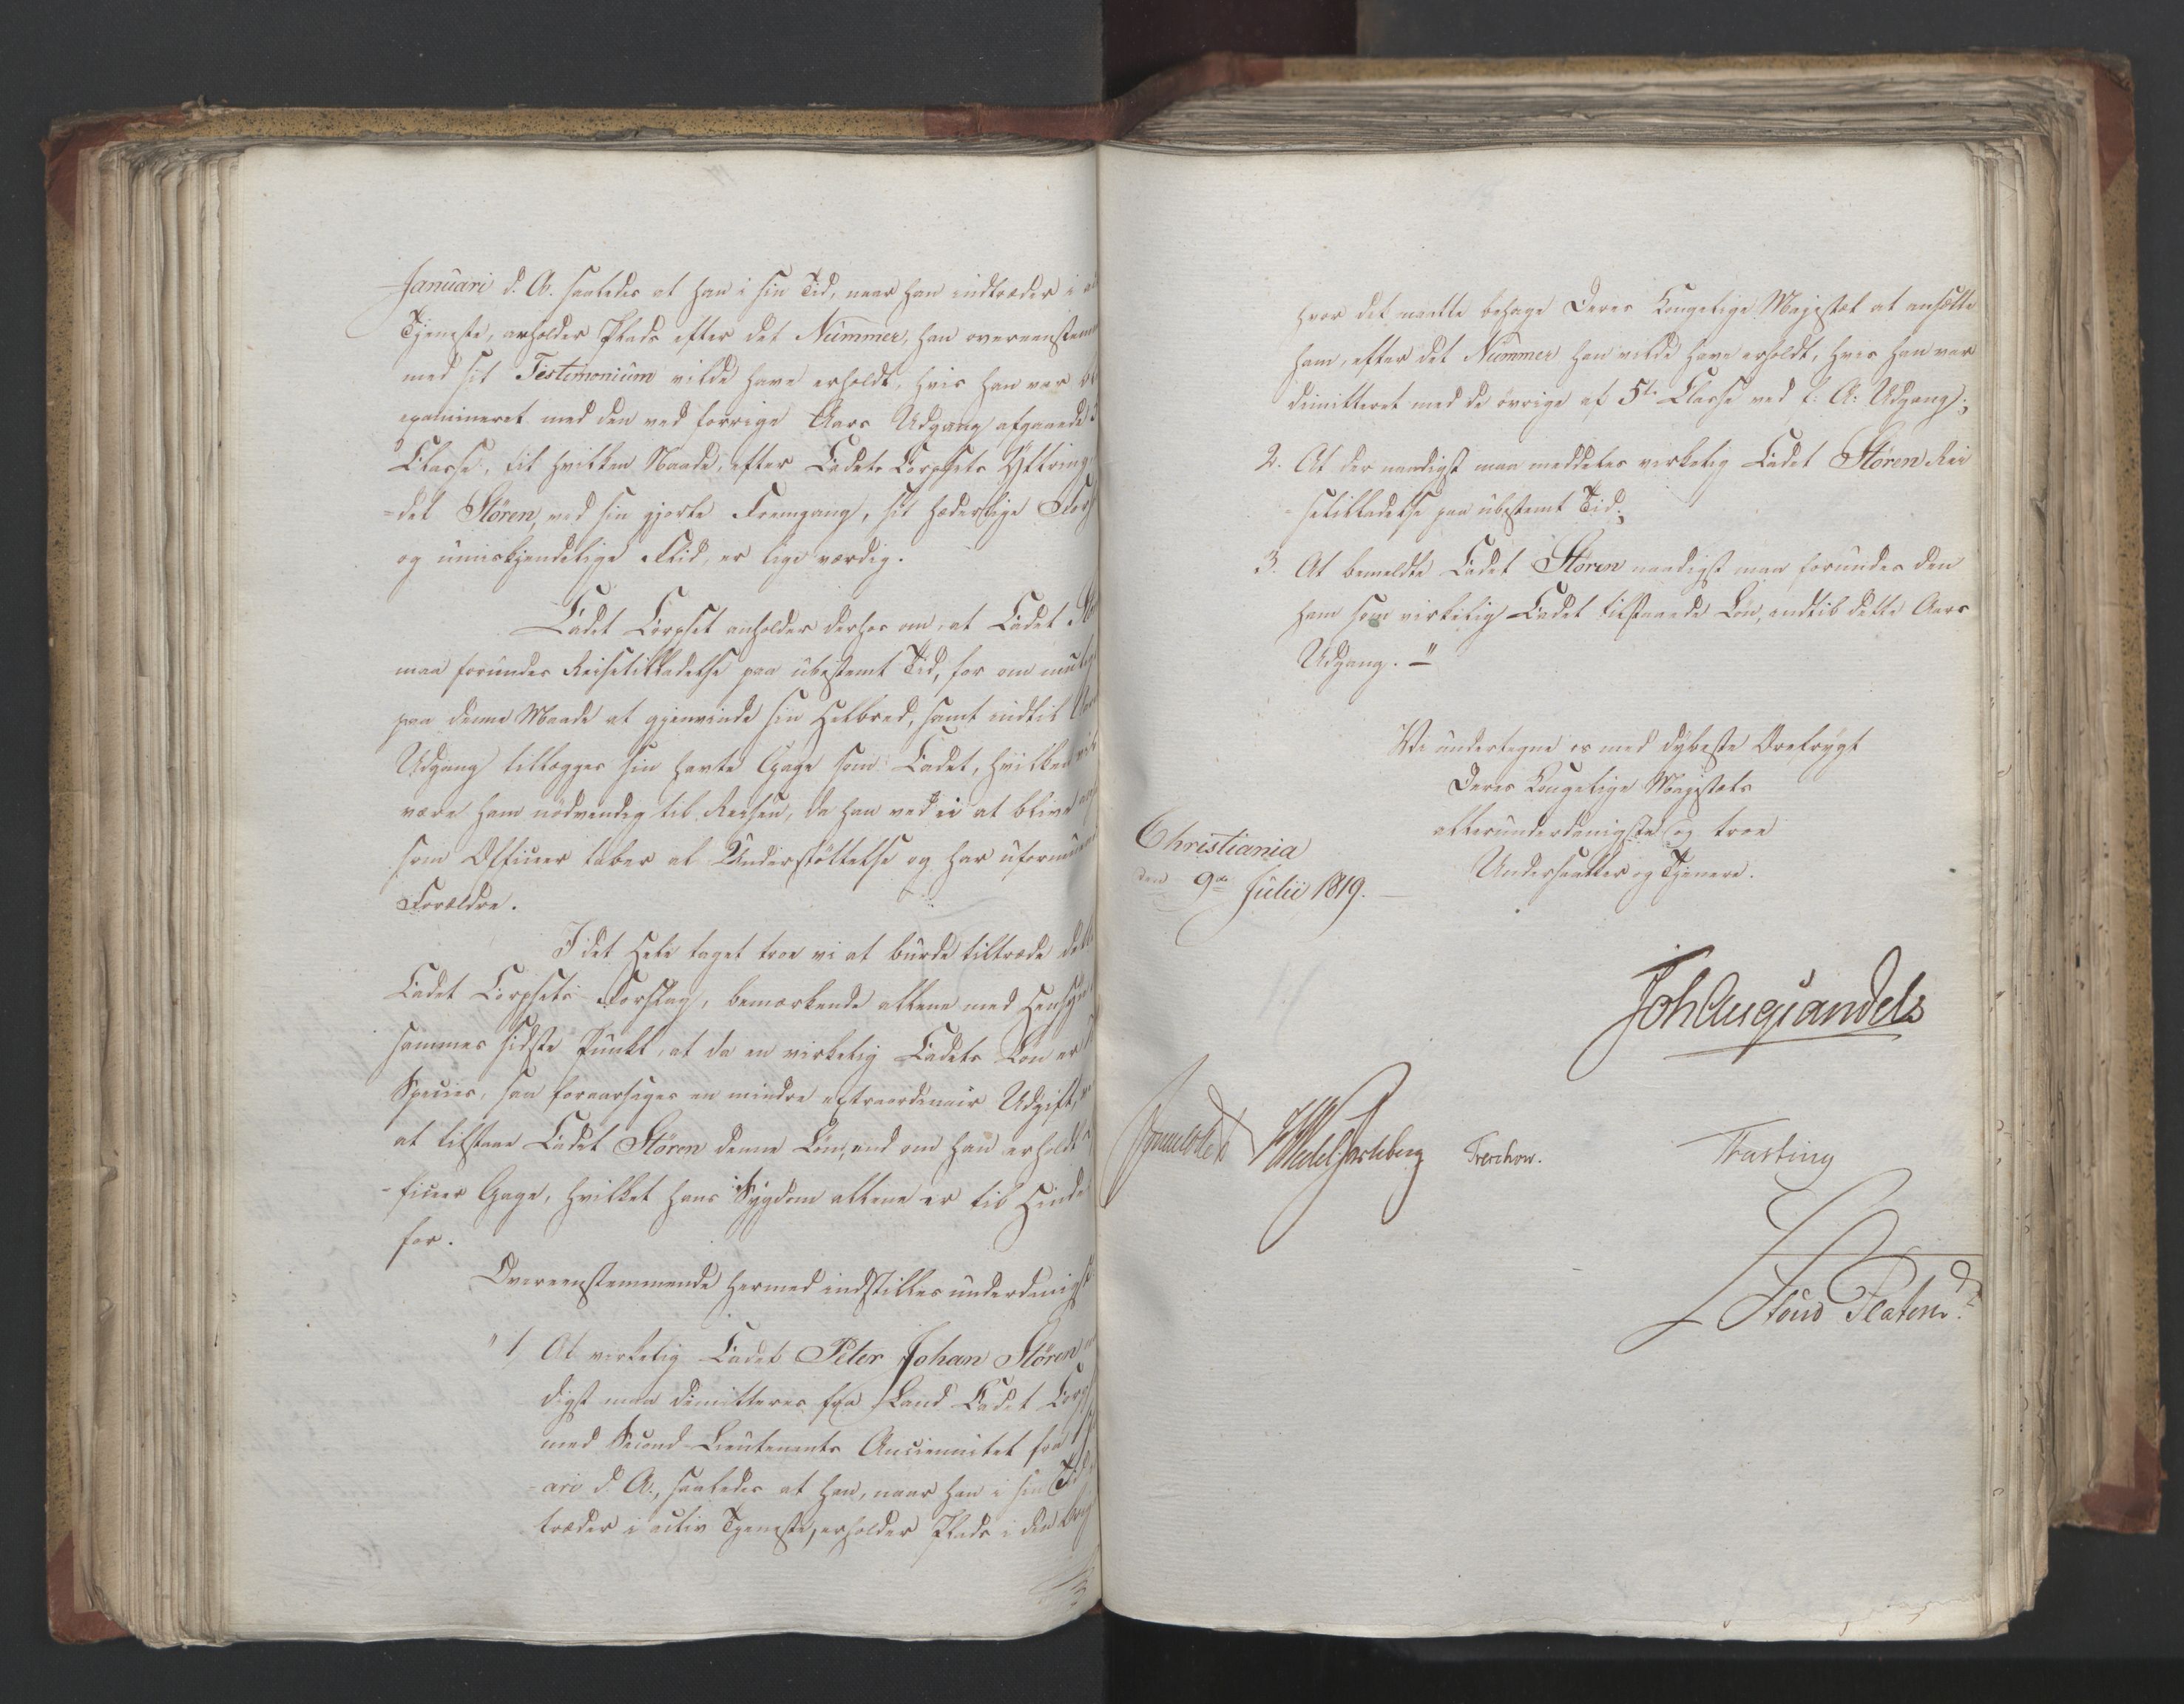 Januari d. A. saaledes at han i sin Tid, naar han indtræder i
Tjeneste, erholder Plads efter det Nummer, han overeenstem
med sit Testimonium vilde have erholdt, hvis han var
examineret med den ved forrige Aars Udgang afgaaede
Classe, til hvilken Naade, efter Cadet Corpsets Yttring
-det Stören, ved sin gjorte Fremgang, sit hæderlige
og umiskjendelige Flid, er lige værdig.
Cadet Corpset anholder derhos om, at Cadet
maa forundes Reisetilladelse paa ubestemt Tid, for om mulig
paa denne Maade at gjenvinde sin Helbred, samt indtil
Udgang tillægges sin havte Gage som Cadet, hvilken
være ham nödvendig til Reisen, da han ved ei at blive
som Officeer taber al Understöttelse og har uformu
Forældre.
I det Hele taget troe vi at burde tiltræde
Cadet Corpsets Forslag, bemærkende allene med Hensyn
sammes sidste Punkt, at da en virkelig Cadets Lön er
Species, saa foraarsages en mindre extraordinair Udgift,
at tilstaae Cadet Stören denne Lön, end om han erholdt
-ficeer Gage, hvilket hans Sygdom allene er til Hinder
for.
Overeenstemmende hermed indstilles underdanigst
" 1 At virkelig Cadet Peter Johan Stören
digst maa dimitteres fra Land Cadet Corps
med Second-Lieutenants Anciennitet fra
-ari d. A., saaledes at han, naar han i sin Tid
træder i activ Tjeneste, erholder Plads i den
hvor det maatte behage Deres Kongelige Majestæt at ansætte
ham, efter det Nummer han vilde have erholdt, hvis han var
dimitteret med de övrige af 5te Classe ved f: A: Udgang;
2. At der naadigst maa meddeles virkelig Cadet Stören Rei
-setilladelse paa ubestemt Tid;
3. At bemeldte Cadet Stören naadigst maa forundes den
ham som virkelig Cadet tilstaaede Lön, indtil dette Aars
Udgang. "
Vi undertegne os med dybeste Ærefrygt
Deres Kongelige Majestæts
allerunderdanigste og troe
Undersaatter og Tjenere.
Christiania
den 9de Julii 1819.
Joh Aug Sandels
Sommerhielm
HWedelJarlsberg
Treschow.
Fasting
Stoud Platou